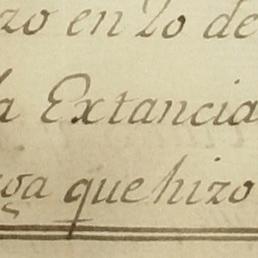 zo en 20 de
a Extancia
ga que hizo